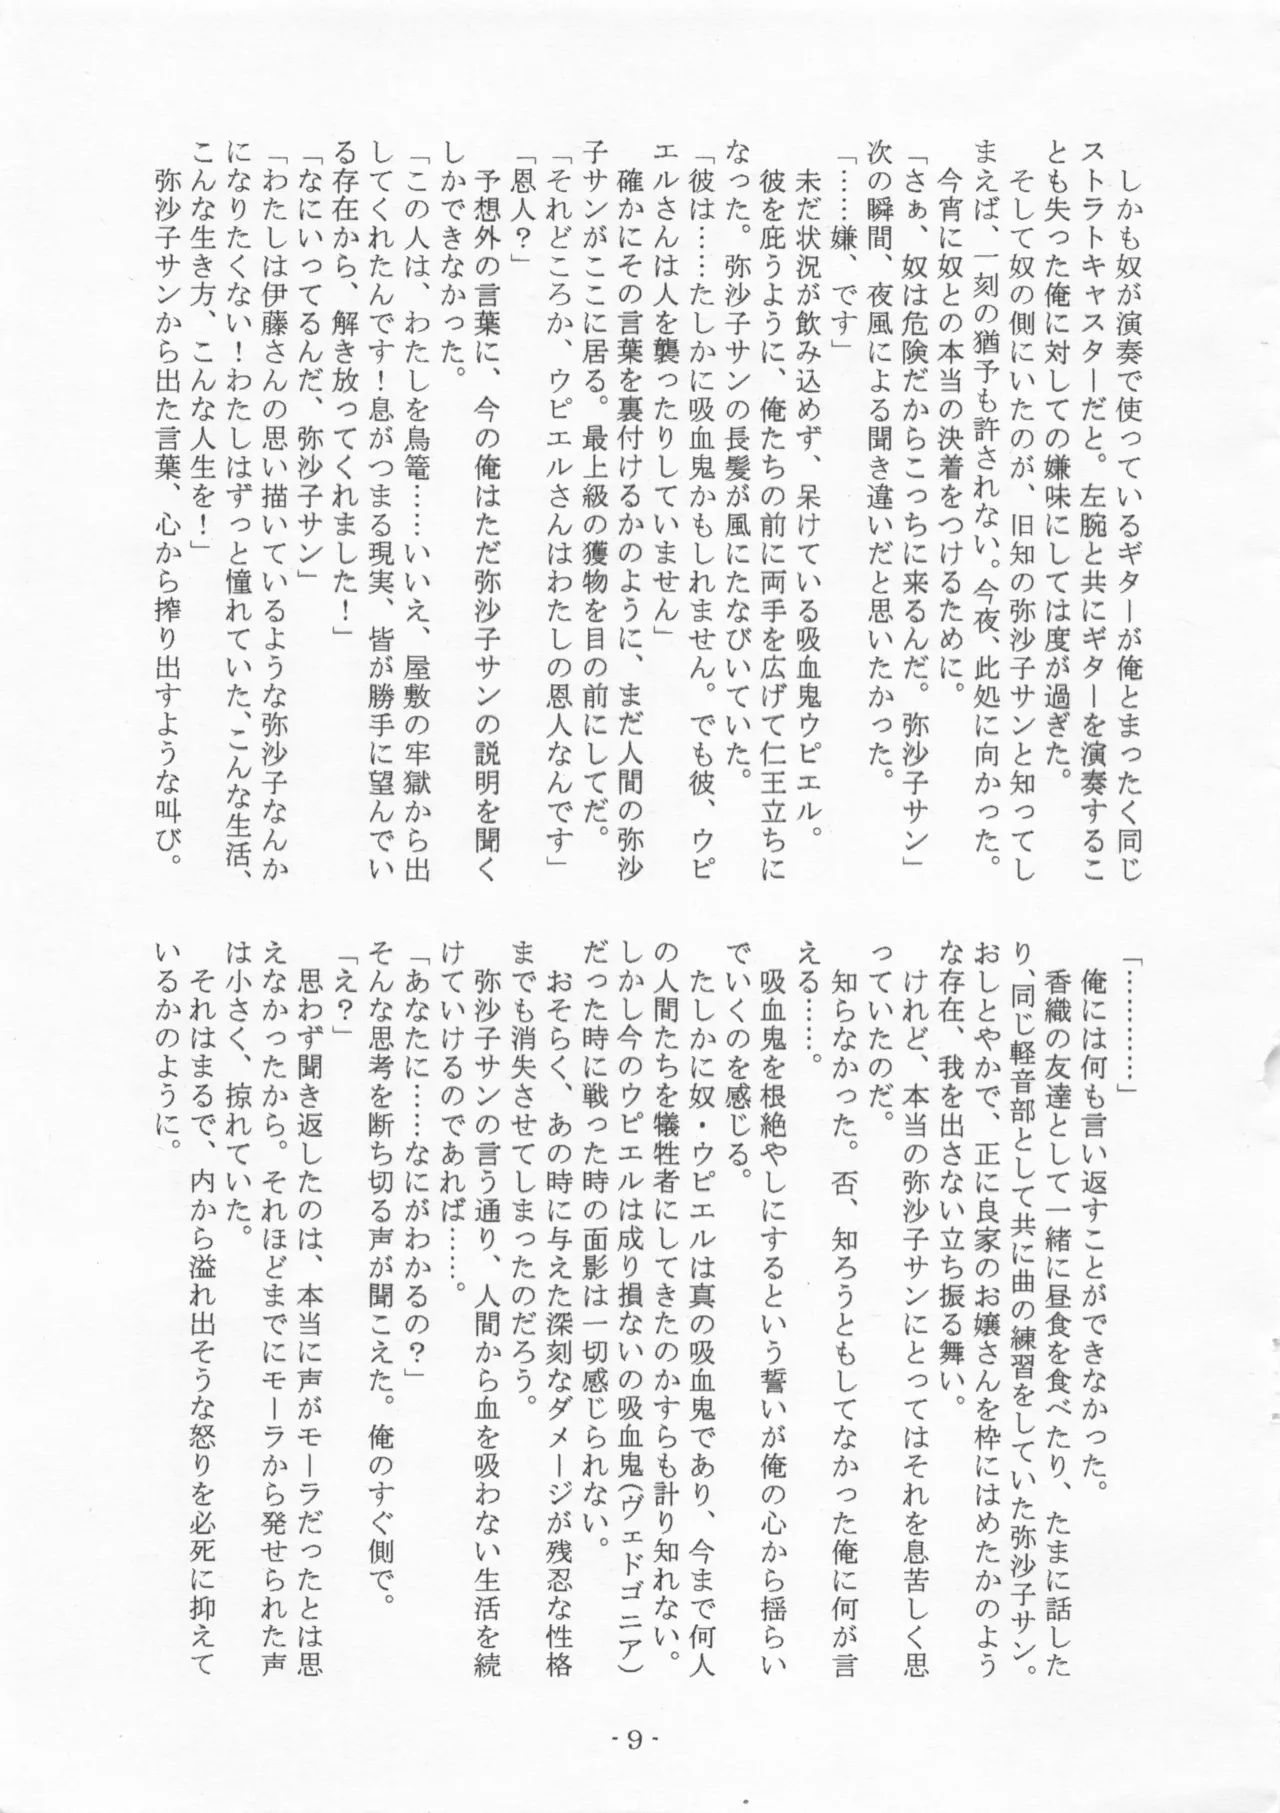 しかも奴が演奏で使っているギターが俺とまったく同じ
ストラトキャスターだと。左腕と共にギターを演奏するこ
とも失った俺に対しての嫌味にしては度が過ぎた。
そして奴の側にいたのが、旧知の弥沙子サンと知ってし
まえば、一刻の猶予も許されない。今夜、此処に向かった。
今宵に奴との本当の決着をつけるために。
「さぁ、奴は危険だからこっちに来るんだ。弥沙子サン」
次の瞬間、夜風による聞き違いだと思いたかった。
「……嫌、です」
未だ状況が飲み込めず、呆けている吸血鬼ウピエル。
彼を庇うように、俺たちの前に両手を広げて仁王立ちに
なった。弥沙子サンの長髪が風にたなびいていた。
「彼は……たしかに吸血鬼かもしれません。でも彼、ウピ
エルさんは人を襲ったりしていません」
確かにその言葉を裏付けるかのように、まだ人間の弥沙
子サンがここに居る。最上級の獲物を目の前にしてだ。
「それどころか、ウピエルさんはわたしの恩人なんです」
「恩人？」
予想外の言葉に、今の俺はただ弥沙子サンの説明を聞く
しかできなかった。
「この人は、わたしを鳥篭……いいえ、屋敷の牢獄から出
してくれたんです！息がつまる現実、皆が勝手に望んでい
る存在から、解き放ってくれました！」
「なにいってるんだ、弥沙子サン」
「わたしは伊藤さんの思い描いているような弥沙子なんか
になりたくない！わたしはずっと憧れていた、こんな生活、
こんな生き方、こんな人生を！」
弥沙子サンから出た言葉、心から搾り出すような叫び。
「…………」
俺には何も言い返すことができなかった。
香織の友達として一緒に昼食を食べたり、たまに話した
り、同じ軽音部として共に曲の練習をしていた弥沙子サン。
おしとやかで、正に良家のお嬢さんを枠にはめたかのよう
な存在、我を出さない立ち振る舞い。
けれど、本当の弥沙子サンにとってはそれを息苦しく思
っていたのだ。
知らなかった。否、知ろうともしてなかった俺に何が言
える……。
吸血鬼を根絶やしにするという誓いが俺の心から揺らい
でいくのを感じる。
たしかに奴・ウピエルは真の吸血鬼であり、今まで何人
の人間たちを犠牲者にしてきたのかすらも計り知れない。
しかし今のウピエルは成り損ないの吸血鬼(ヴェドゴニア)
だった時に戦った時の面影は一切感じられない。
おそらく、あの時に与えた深刻なダメージが残忍な性格
までも消失させてしまったのだろう。
弥沙子サンの言う通り、人間から血を吸わない生活を続
けていけるのであれば……。
「あなたに……なにがわかるの？」
そんな思考を断ち切る声が聞こえた。俺のすぐ側で。
「え？」
思わず聞き返したのは、本当に声がモーラだったとは思
えなかったから。それほどまでにモーラから発せられた声
は小さく、掠れていた。
それはまるで、内から溢れ出そうな怒りを必死に抑えて
いるかのように。
- 9 -